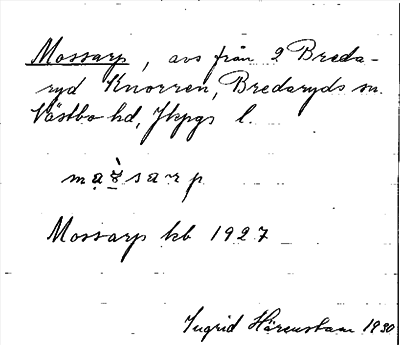 Mossarp, avs från 2 Breda-
ryd Knorren, Bredaryds sn.
Västbo hd, Jkpgs l.
Mossarp kb 1927
Ingrid Härenstam 1930